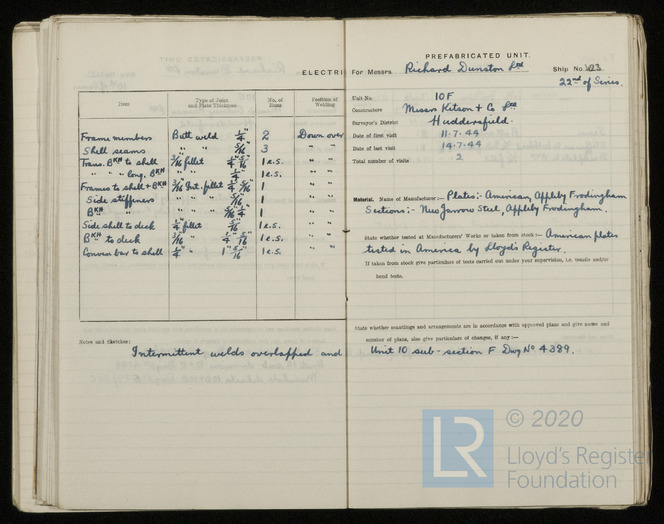 PREFABRICATED UNIT.
ELECTRI For Messrs Richard Dunston Ltd Ship No.
22nd of Series.
Item Type of Joint and Plate Thickness No. of Runs Position of Welding
Frame members Butt weld 1/4" 2 Down over
Shell seams " " 5/16" 3 " "
Trans. BKH to shell 3/16 fillet 1/4" 5/16" 1 e.s. " "
" " long. BKH " " 1/4" 1 e.s. " "
Frames to shell + BKH 3/16" Int. fillet 1/4" 5/16" 1 " "
Side stiffeners " " " 5/16" 1 " "
BKH " " " " 1 " "
Side shell to deck 1/4" fillet 5/16" 1 e.s. " "
BKH to deck 3/16 " 1/4" 5/16" 1 e.s. " "
Convex bar to shell 1/4" " 1" 5/16" 1 e.s. " "
Notes and Sketches:
Intermittent welds overlapped and
Unit No. 10F
Constructors Messrs Kitson & Co Ltd
Surveyor's District Huddersfield.
Date of first visit 11.7.44
Date of last visit 14.7.44
Total number of visits 2
Material. Name of Manufacturer:— Plates:- American, Appleby Frodingham
Sections:- New Jarrow Steel, Appleby Frodingham.
State whether tested at Manufacturers' Works or taken from stock:— American plates
tested in America by Lloyd's Register.
If taken from stock give particulars of tests carried out under your supervision, i.e. tensile and/or
bend tests.
State whether scantlings and arrangements are in accordance with approved plans and give name and
number of plans, also give particulars of changes, if any:—
Unit 10 sub-section F Dwg No 4389.
© 2020
LR
Lloyd's Register
Foundation